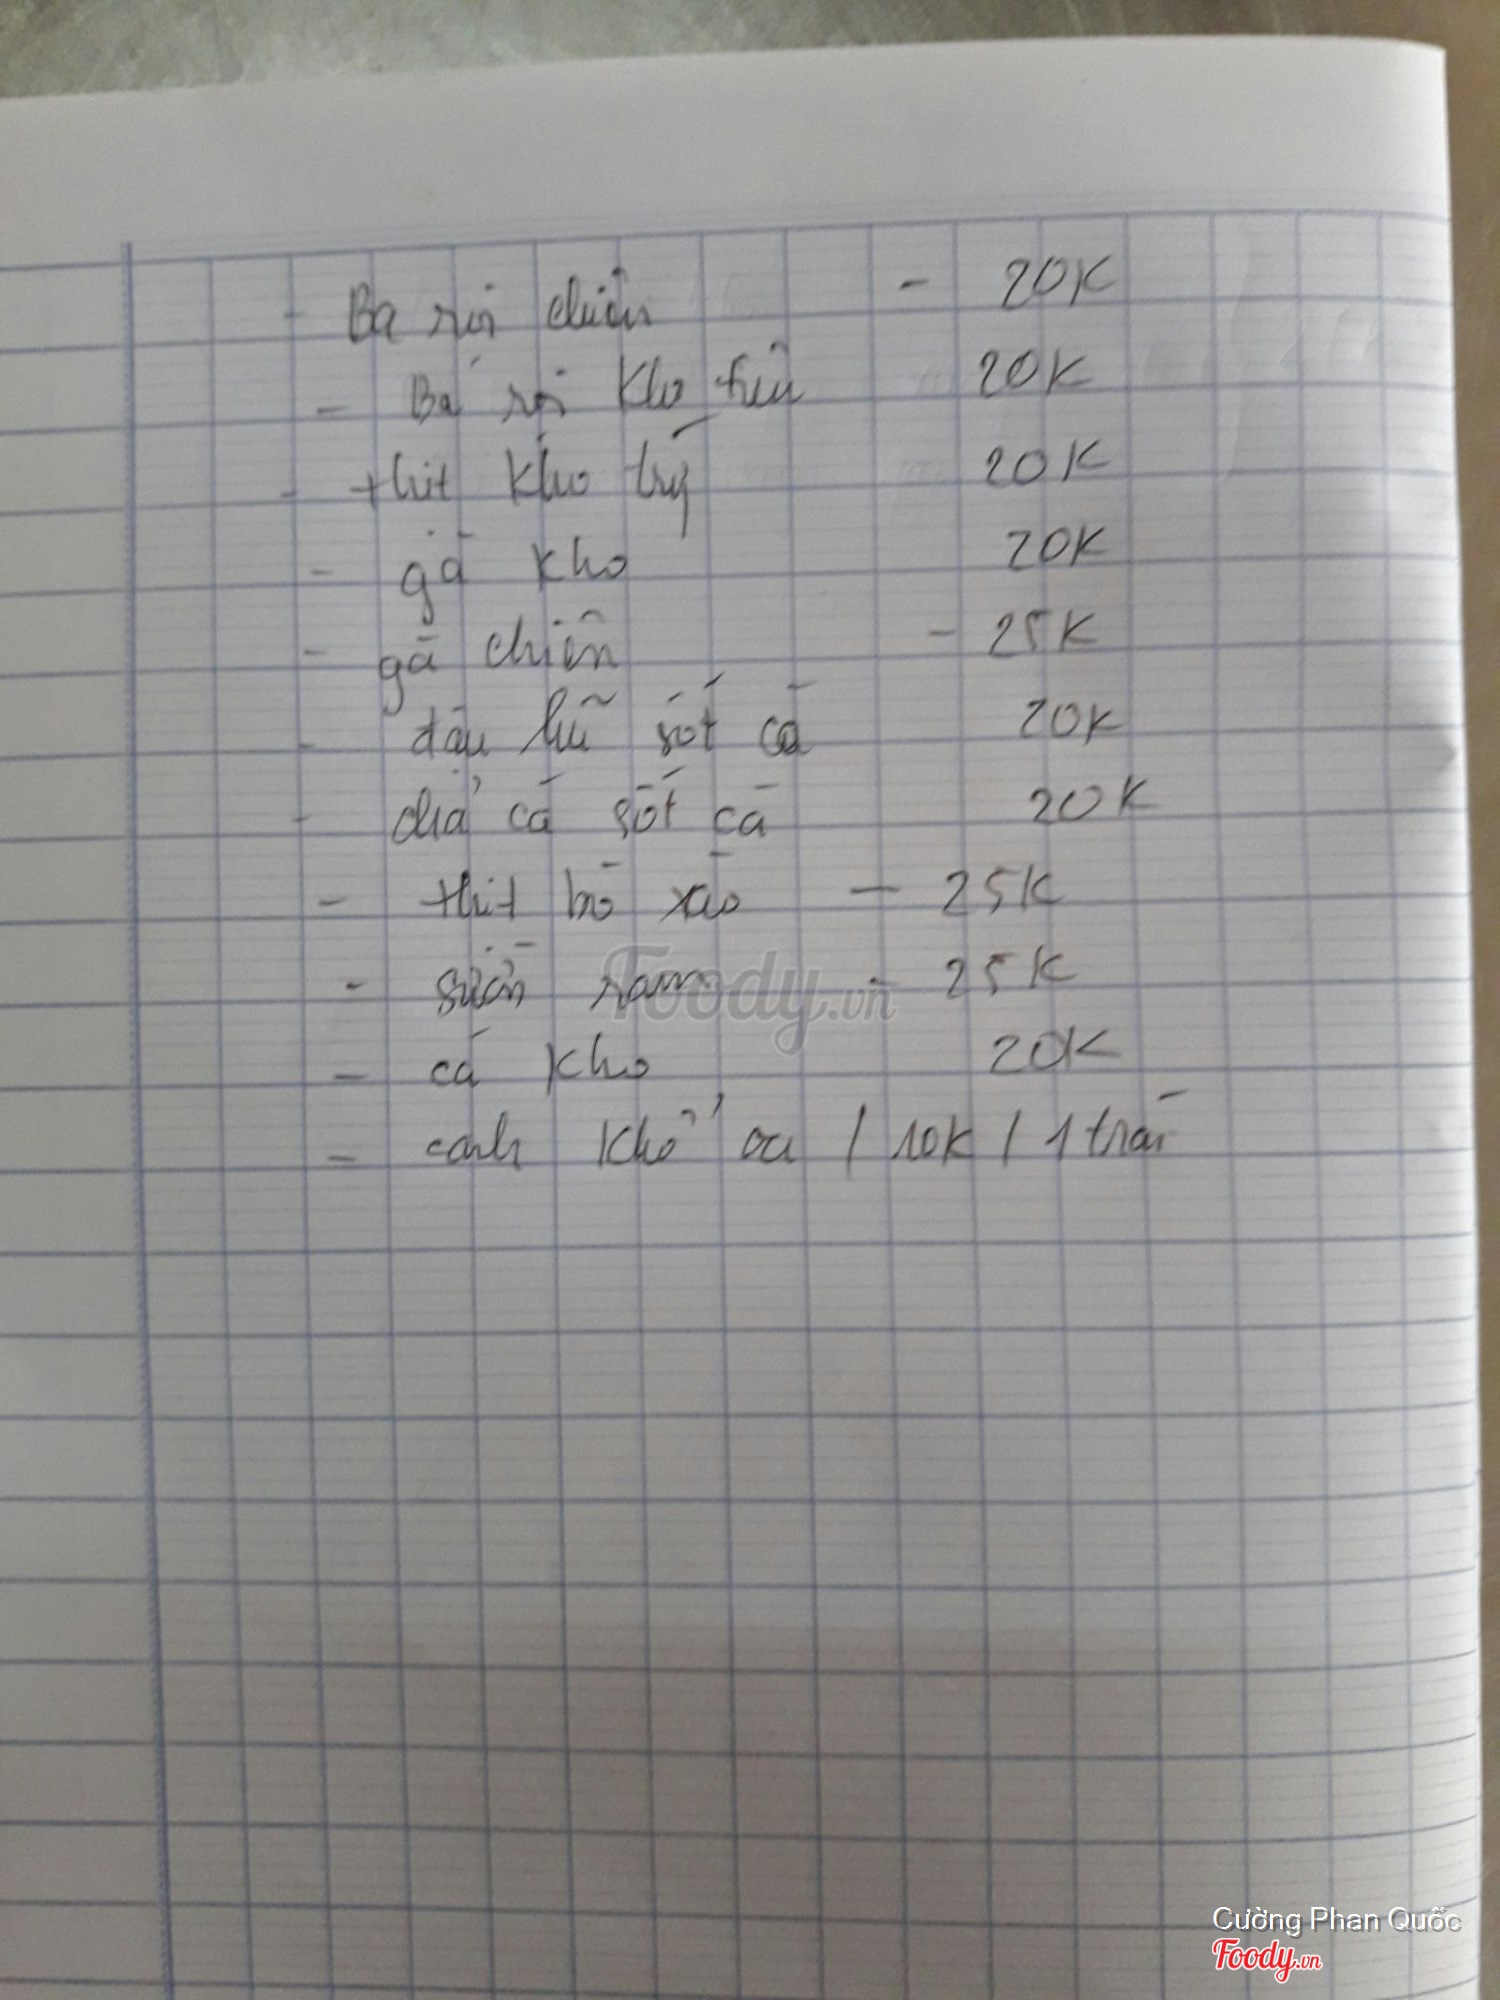 - Ba rọi chiên - 20K
- Ba rọi kho tiêu 20K
- thịt kho trứng 20K
- gà kho 20K
- gà chiên - 25K
- đậu hũ sốt cà 20K
- chả cá sốt cà 20K
- thịt bò xào - 25K
- sườn ram - 25K
- cá kho 20K
- canh khổ qua / 10K / 1 trái
Foody.vn
Cường Phan Quốc
Foody.vn